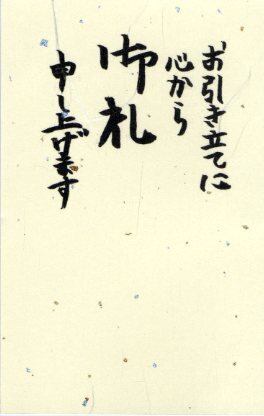 お引き立てに
心から
御礼
申し上げます